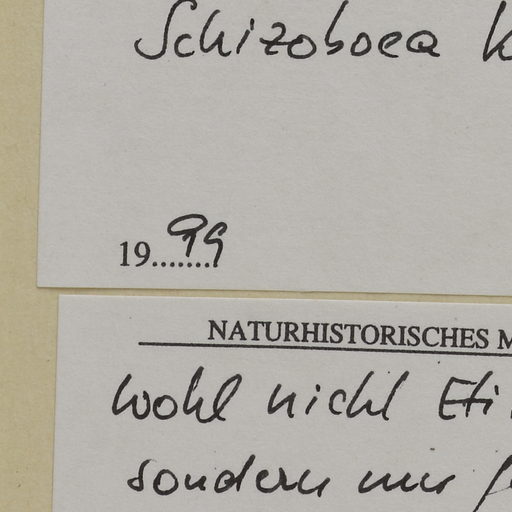 Schizoboea k
19........99
NATURHISTORISCHES M
wohl nicht Eti
sondern nur